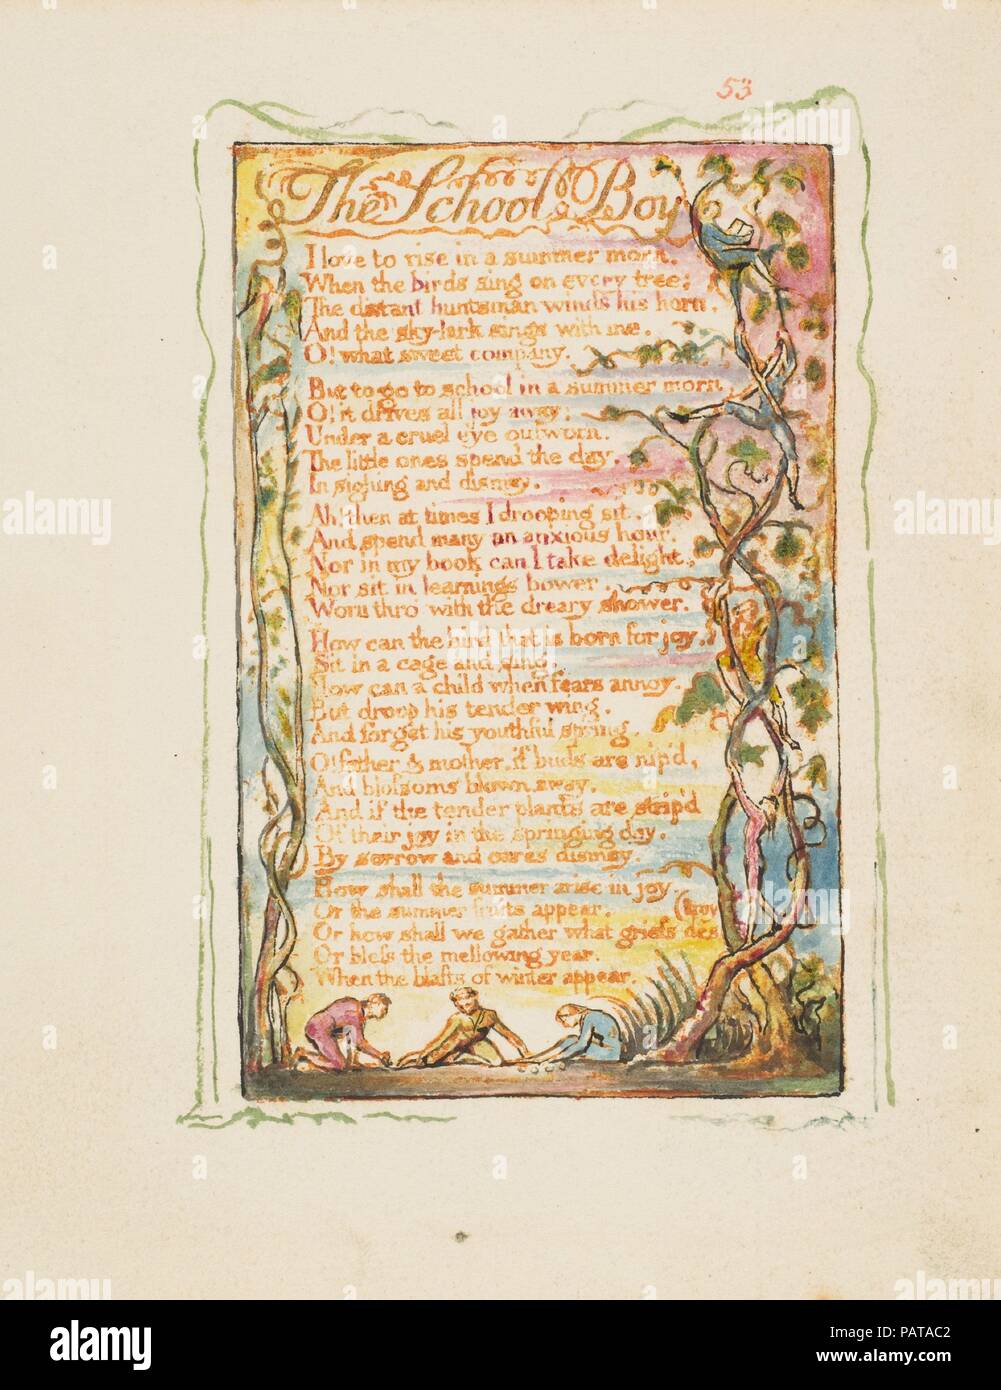 53
The School Boy
I love to rise in a summer morn,
When the birds sing on every tree;
The distant huntsman winds his horn,
And the sky-lark sings with me.
O! what sweet company.
But to go to school in a summer morn,
O! it drives all joy away;
Under a cruel eye outworn.
The little ones spend the day,
In sighing and dismay.
Ah! then at times I drooping sit,
And spend many an anxious hour.
Nor in my book can I take delight,
Nor sit in learnings bower,
Worn thro' with the dreary shower.
How can the bird that is born for joy,
Sit in a cage and sing.
How can a child when fears annoy.
But droop his tender wing.
And forget his youthful spring.
O! father & mother, if buds are nip'd,
And blossoms blown away,
And if the tender plants are strip'd
Of their joy in the springing day,
By sorrow and cares dismay,
How shall the summer arise in joy
Or the summer fruits appear,
(troy
Or how shall we gather what griefs des
Or bless the mellowing year,
When the blasts of winter appear.
alamy
Image ID: PATAC2
www.alamy.com